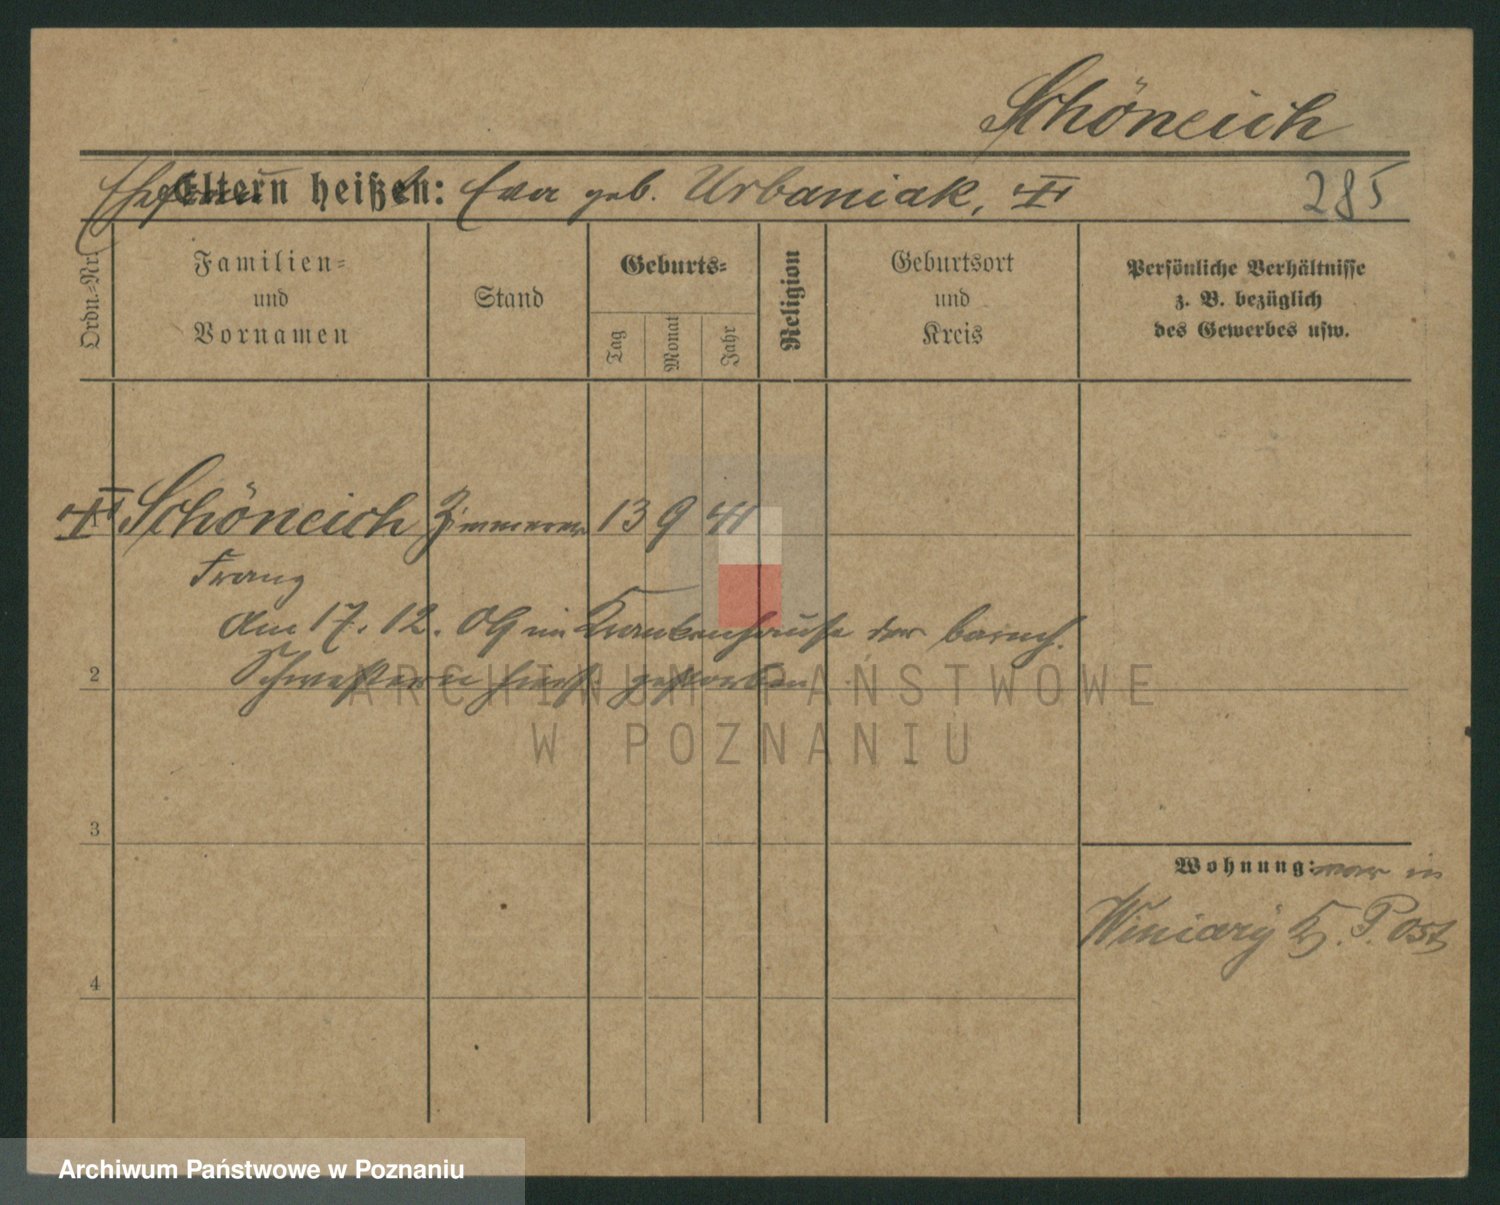 Schöneich
Ehefrau Eltern heißen: Eva geb. Urbaniak,
285
Ordn.-Nr.
Familien-
und
Vornamen
Stand
Geburts-
Tag
Monat
Jahr
Religion
Geburtsort
und
Kreis
Persönliche Verhältnisse
z. B. bezüglich
des Gewerbes usw.
Schöneich Zimmerer 13 9 41
Franz
Am 17. 12. 04 im Krankenhause der barmh.
2 Schwestern hierf. gestorben
3
Wohnung: war in
Winiary P. Ost
4
ARCHIWUM PAŃSTWOWE
W POZNANIU
Archiwum Państwowe w Poznaniu